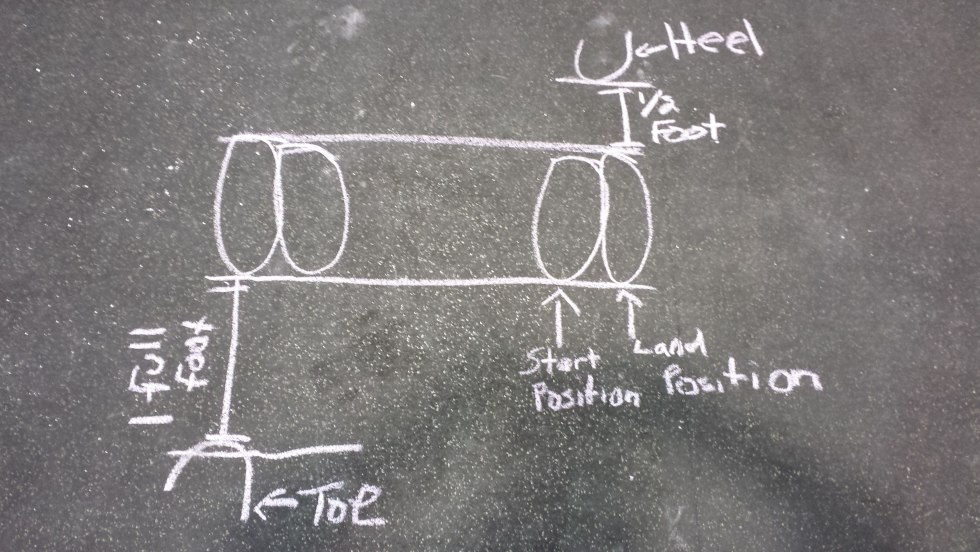 Heel
1/2
Foot
1 full
foot
Start
Position
Land
Position
Toe